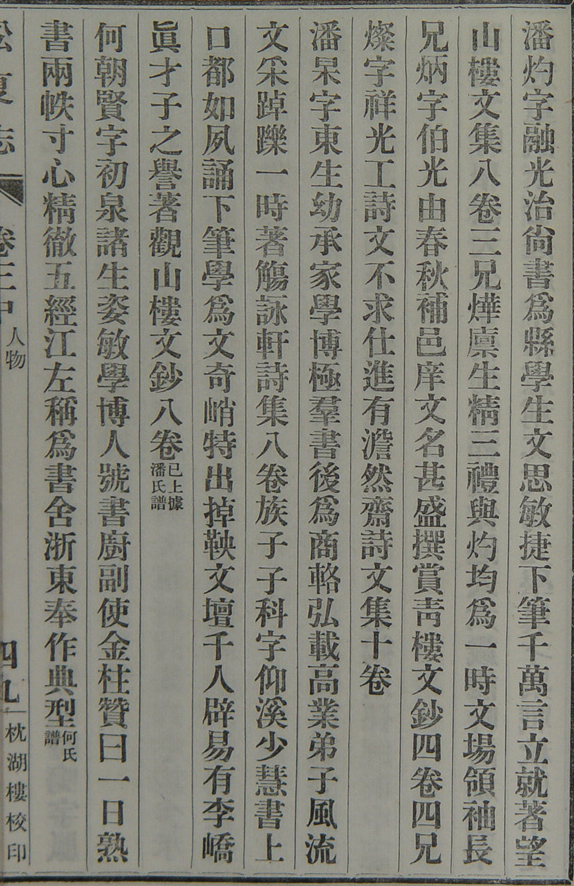 潘灼字融光治尙書爲縣學生文思敏捷下筆千萬言立就著望
山樓文集八卷三兄燁廩生精三禮與灼均爲一時文場領袖長
兄炳字伯光由春秋補邑庠文名甚盛撰賞靑樓文鈔四卷四兄
燦字祥光工詩文不求仕進有澹然齋詩文集十卷
潘杲字東生幼承家學博極羣書後爲商輅弘載高業弟子風流
文采踔躒一時著觴詠軒詩集八卷族子子科字仰溪少慧書上
口都如夙誦下筆學爲文奇峭特出掉鞅文壇千人辟易有李嶠
眞才子之譽著觀山樓文鈔八卷已上據潘氏譜
何朝賢字初泉諸生姿敏學博人號書廚副使金柱贊曰一日熟
書兩帙寸心精徹五經江左稱爲書舍浙東奉作典型何氏譜
卷三中 人物 四九 枕湖樓校印